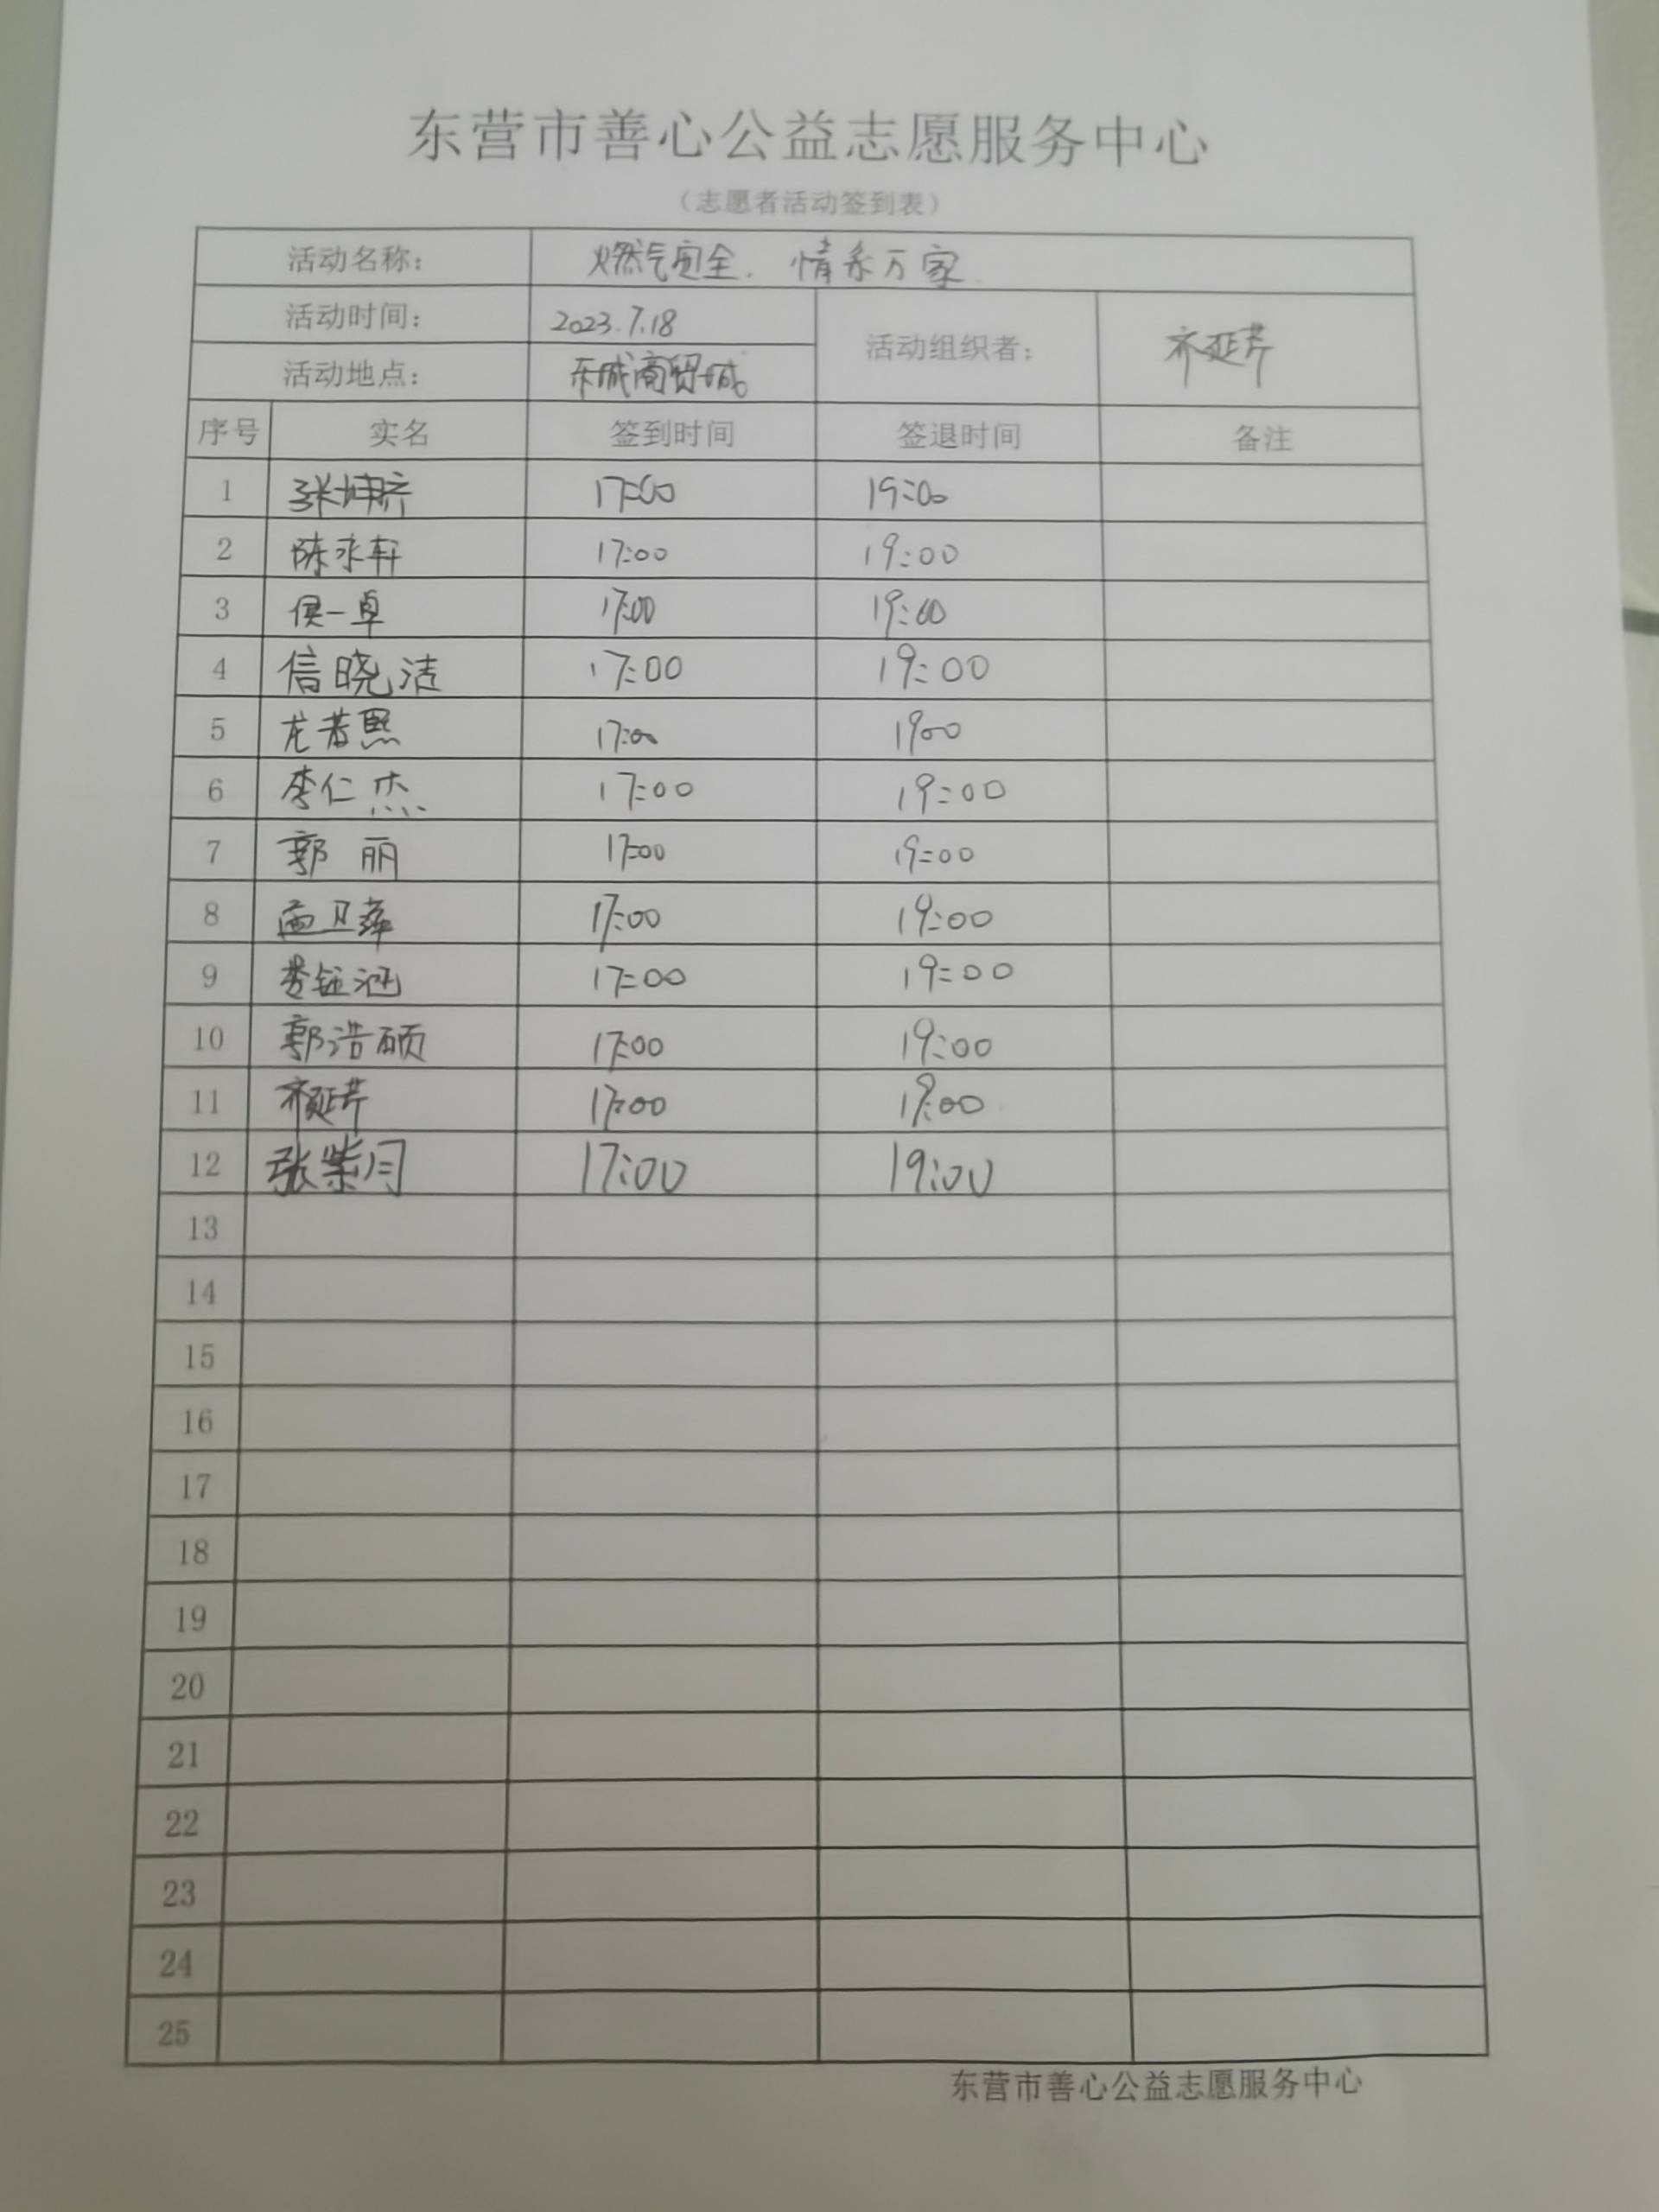 东营市善心公益志愿服务中心
（志愿者活动签到表）
活动名称： 燃气安全．情系万家
活动时间： 2023.7.18 活动组织者： 齐延芹
活动地点： 东城商贸城
序号 实名 签到时间 签退时间 备注
1 张坤齐 17:00 19:00
2 陈永轩 17:00 19:00
3 侯一卓 17:00 19:00
4 信晓洁 17:00 19:00
5 龙若熙 17:00 19:00
6 李仁杰 17:00 19:00
7 郭丽 17:00 19:00
8 孟卫萍 17:00 19:00
9 17:00 19:00
10 郭浩硕 17:00 19:00
11 齐延芹 17:00 19:00
12 张紫月 17:00 19:00
13
14
15
16
17
18
19
20
21
22
23
24
25
东营市善心公益志愿服务中心